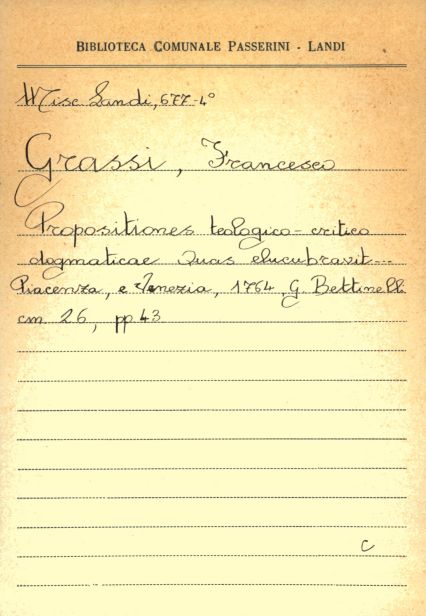 BIBLIOTECA COMUNALE PASSERINI - LANDI
Misc. Landi, 677-4°
Grassi, Francesco
Propositiones teologico-critico
dogmaticae quas elucubravit...
Piacenza, e Venezia, 1764, G. Bettinelli
cm. 26, pp. 43
C